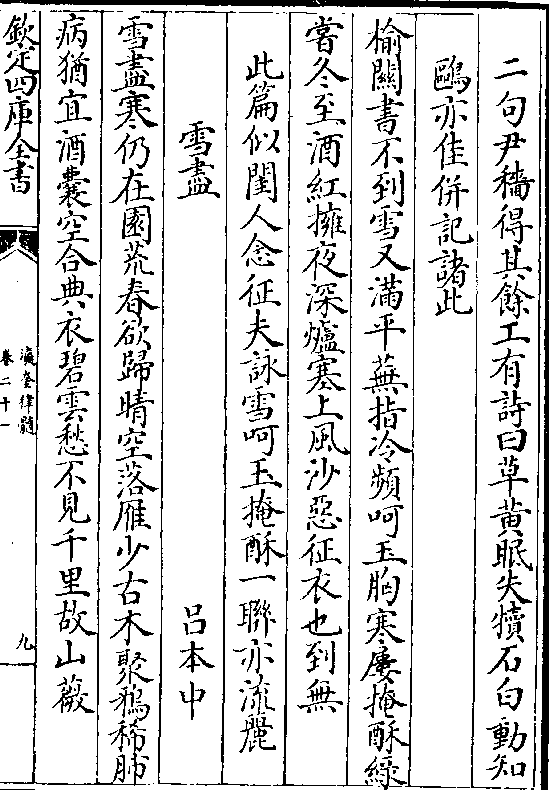 二句尹穡得其餘工有詩曰草黄眠失犢石白動知
鷗亦佳併記諸此
榆闗書不到雪又滿平蕪指冷頻呵玉胸寒屢掩酥緑
嘗冬至酒紅擁夜深爐塞上風沙惡征衣也到無
此篇似閨人念征夫詠雪呵玉掩酥一聯亦流麗
雪盡
吕本中
雪盡寒仍在園荒春欲歸晴空落雁少古木聚鵶稀肺
病猶宜酒囊空合典衣碧雲愁不見千里故山薇
欽定四庫全書
瀛奎律髓
卷二十一
九